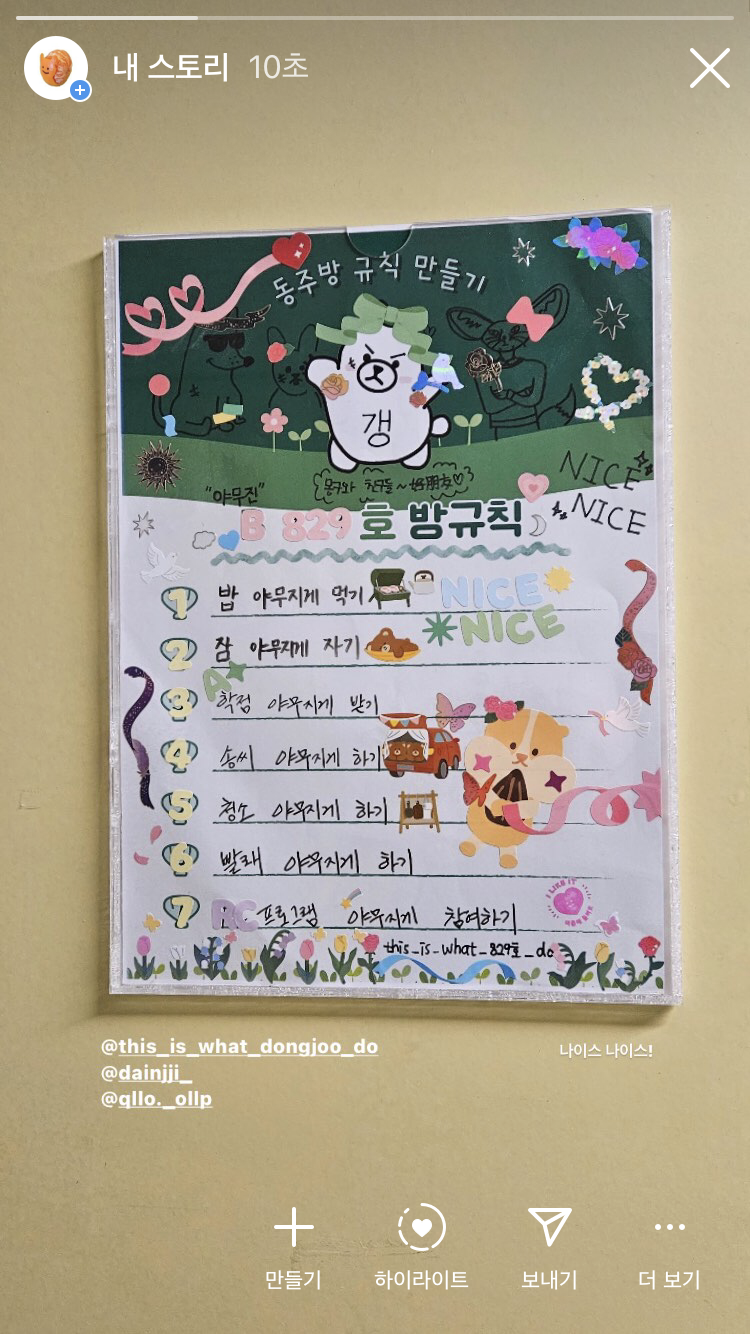 내 스토리 10초
동주방 규칙 만들기
갱
몽구와 친구들~好朋友♡
NICE
NICE
"야무진"
B 829호 방규칙
1 밥 야무지게 먹기
NICE
NICE
2 잠 야무지게 자기
A+
3 학점 야무지게 받기
4 솜씨 야무지게 하기
5 청소 야무지게 하기
6 빨래 야무지게 하기
7 RC 프로그램 야무지게 참여하기
I LIKE IT
this_is_what_829호_do
@this_is_what_dongjoo_do
나이스 나이스!
@dainjji_
@qllo._ollp
만들기 하이라이트 보내기 더 보기